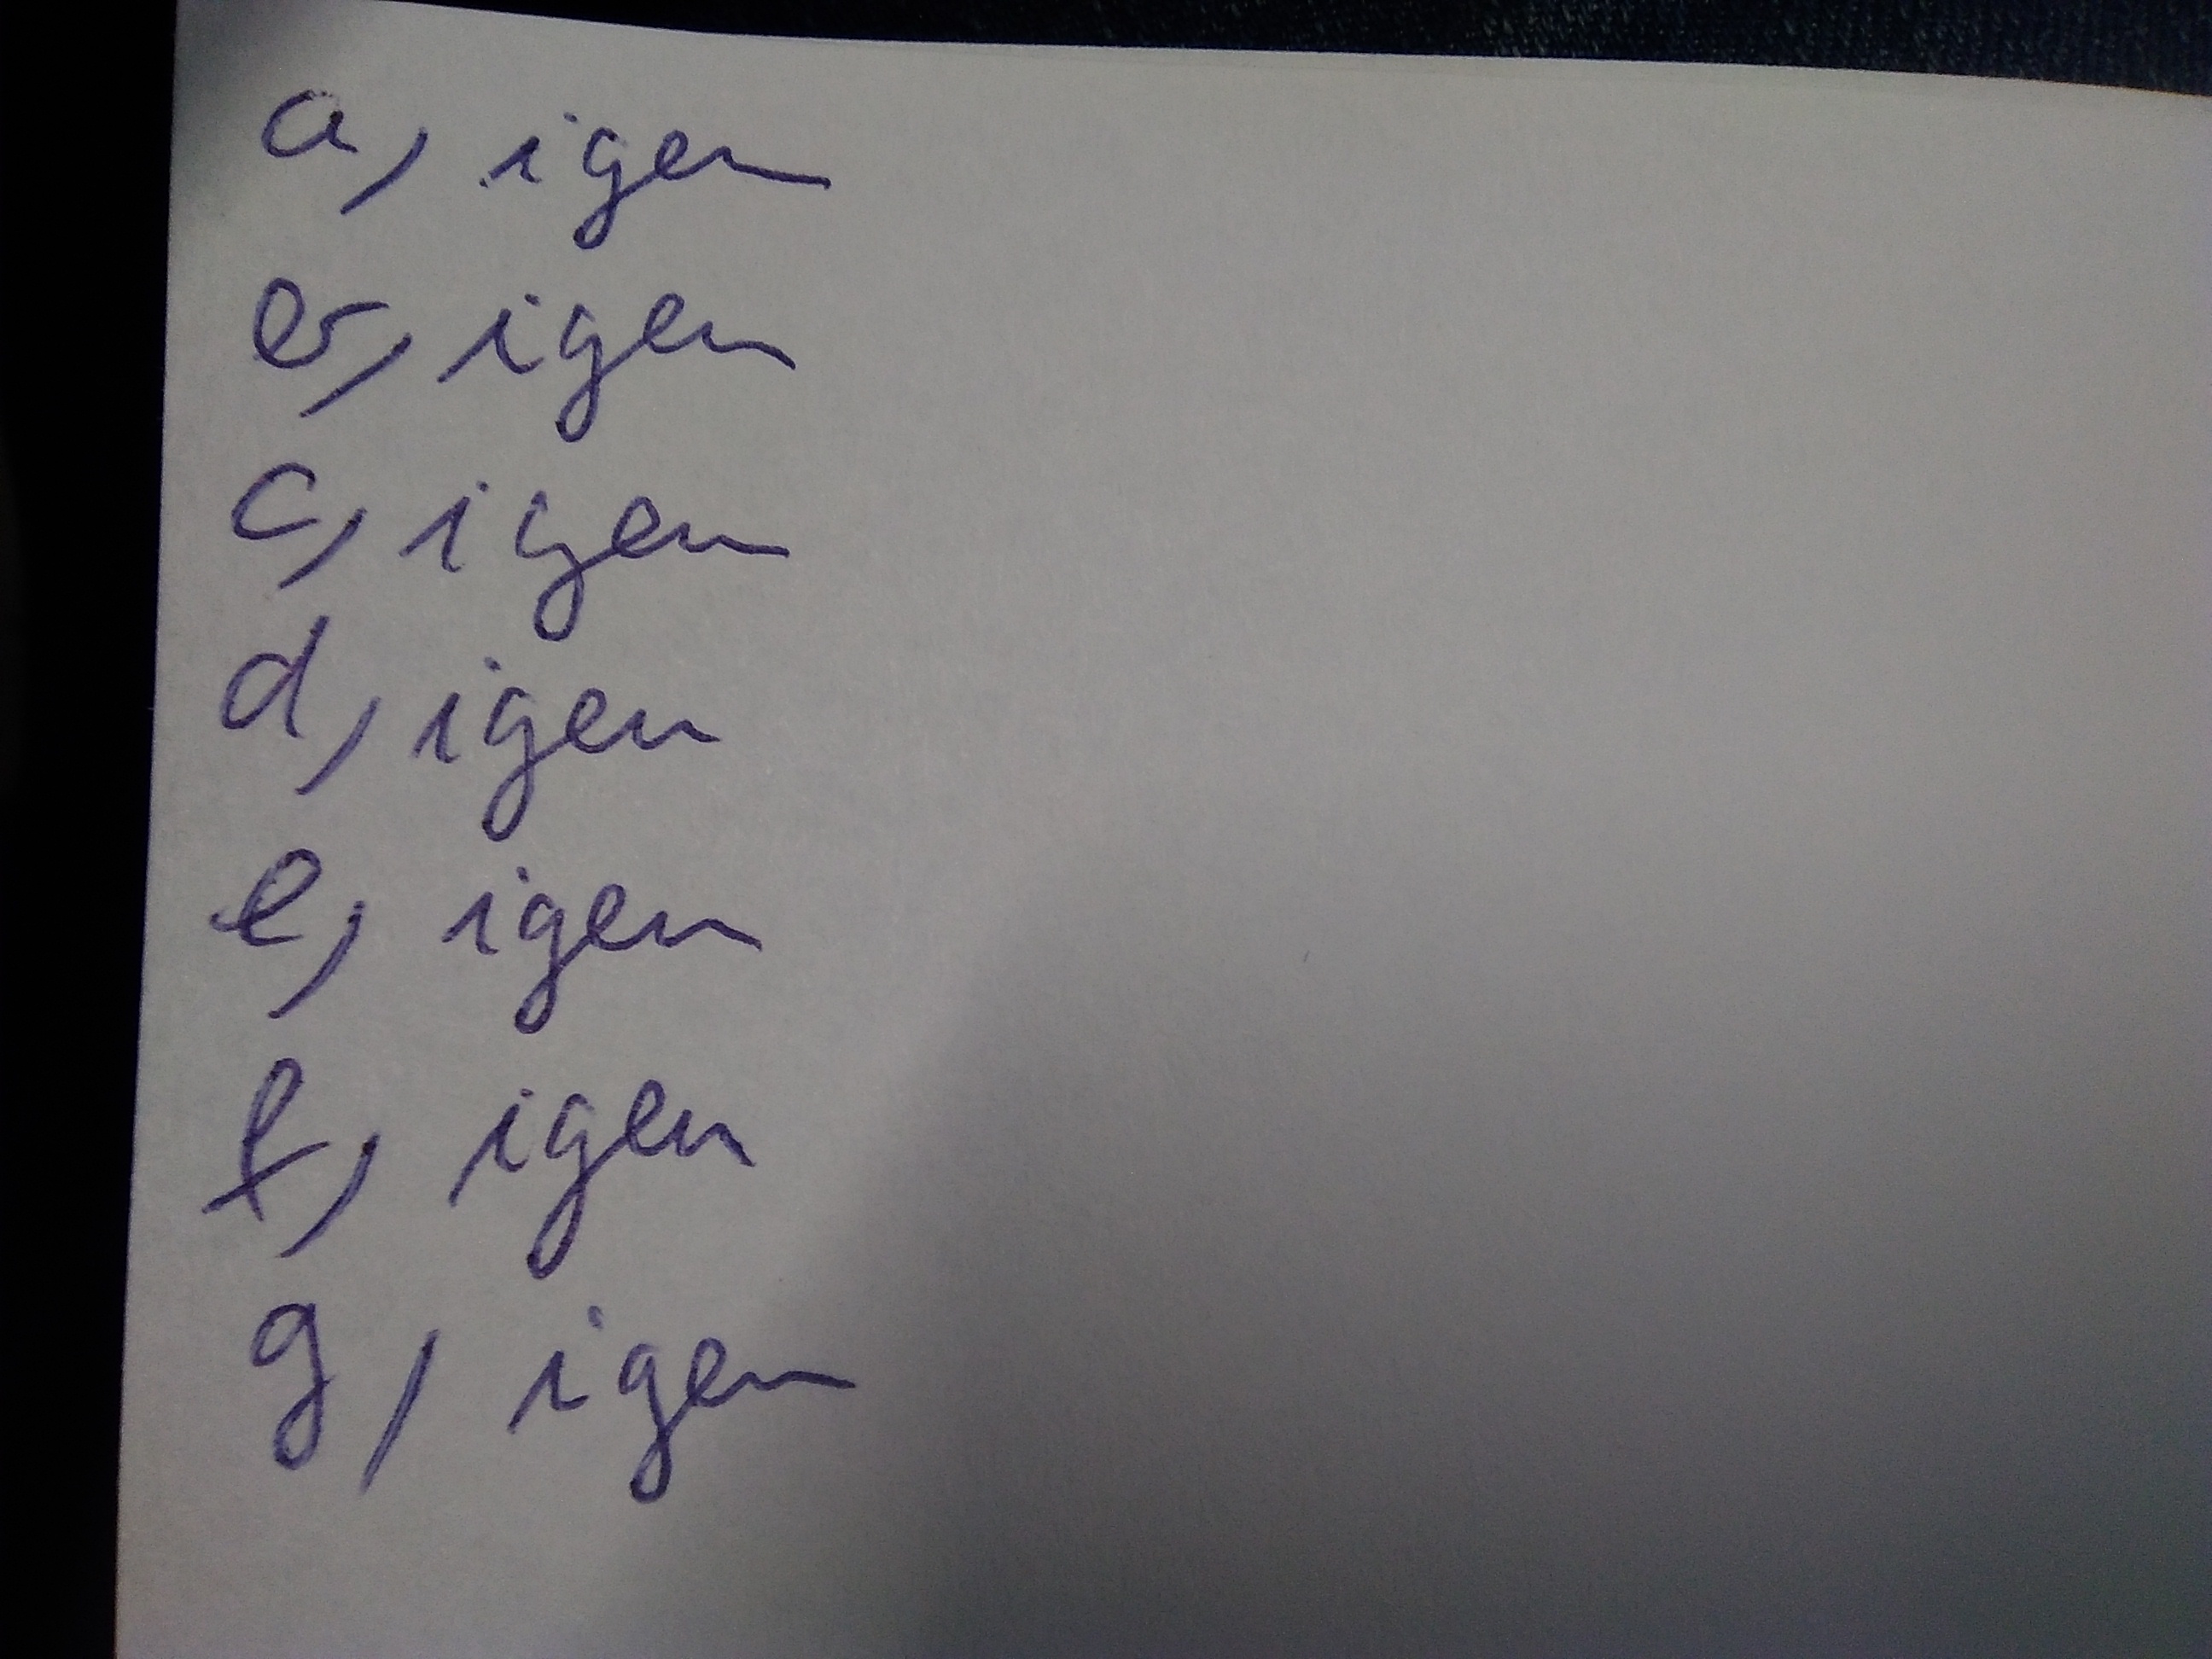 a, igen
b, igen
c, igen
d, igen
e, igen
f, igen
g, igen